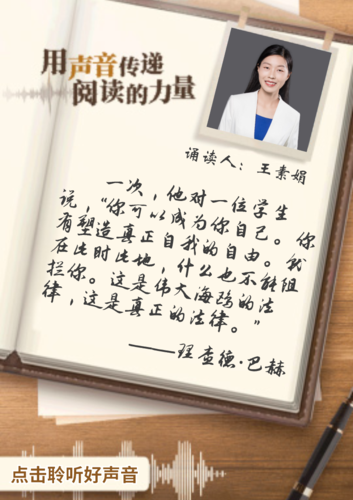 用声音传递
阅读的力量
诵读人：王素娟
一次，他对一位学生
说，“你可以成为你自己。你
有塑造真正自我的自由。我
在此时此地，什么也不能阻
拦你。这是伟大海鸥的法
律，这是真正的法律。”
——理查德·巴赫
点击聆听好声音